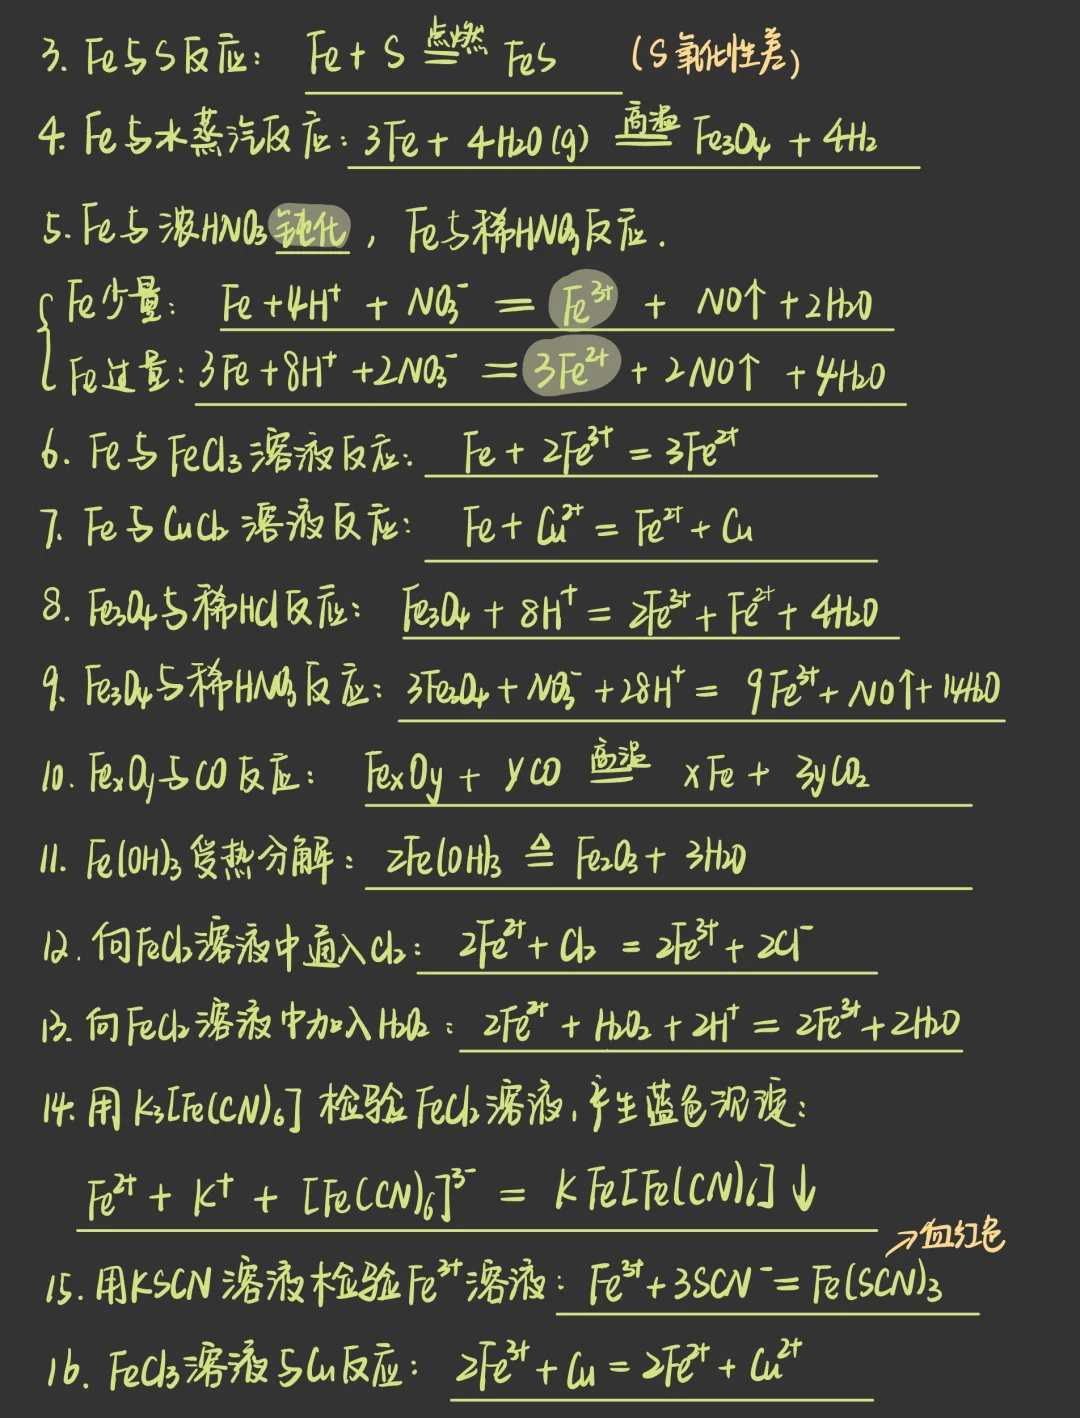 3. Fe与S反应： Fe + S 点燃= FeS （S氧化性差）
4. Fe与水蒸汽反应：3Fe + 4H₂O(g) 高温= Fe₃O₄ + 4H₂
5. Fe与浓HNO₃钝化，Fe与稀HNO₃反应.
{ Fe少量： Fe + 4H⁺ + NO₃⁻ = Fe³⁺ + NO↑ + 2H₂O
Fe过量：3Fe + 8H⁺ + 2NO₃⁻ = 3Fe²⁺ + 2NO↑ + 4H₂O
6. Fe与FeCl₃溶液反应： Fe + 2Fe³⁺ = 3Fe²⁺
7. Fe与CuCl₂溶液反应： Fe + Cu²⁺ = Fe²⁺ + Cu
8. Fe₃O₄与稀HCl反应： Fe₃O₄ + 8H⁺ = 2Fe³⁺ + Fe²⁺ + 4H₂O
9. Fe₃O₄与稀HNO₃反应：3Fe₃O₄ + NO₃⁻ + 28H⁺ = 9Fe³⁺ + NO↑ + 14H₂O
10. FeₓOy与CO反应： FeₓOy + yCO 高温= xFe + 3yCO₂
11. Fe(OH)₃受热分解： 2Fe(OH)₃ △= Fe₂O₃ + 3H₂O
12. 向FeCl₂溶液中通入Cl₂： 2Fe²⁺ + Cl₂ = 2Fe³⁺ + 2Cl⁻
13. 向FeCl₂溶液中加入H₂O₂： 2Fe²⁺ + H₂O₂ + 2H⁺ = 2Fe³⁺ + 2H₂O
14. 用K₃[Fe(CN)₆]检验FeCl₂溶液，产生蓝色沉淀：
Fe²⁺ + K⁺ + [Fe(CN)₆]³⁻ = KFe[Fe(CN)₆]↓
→血红色
15. 用KSCN溶液检验Fe³⁺溶液： Fe³⁺ + 3SCN⁻ = Fe(SCN)₃
16. FeCl₃溶液与Cu反应： 2Fe³⁺ + Cu = 2Fe²⁺ + Cu²⁺